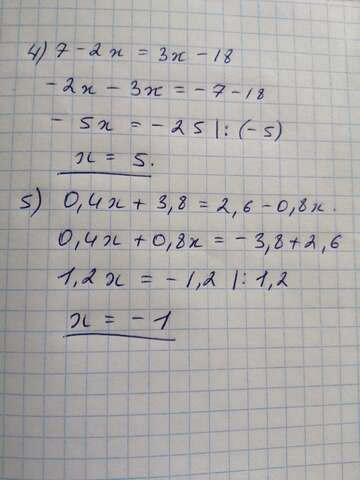 4) 7 - 2x = 3x - 18
- 2x - 3x = - 7 - 18
- 5x = - 25 |: (-5)
x = 5.
5) 0,4x + 3,8 = 2,6 - 0,8x.
0,4x + 0,8x = - 3,8 + 2,6
1,2x = - 1,2 |: 1,2
x = - 1